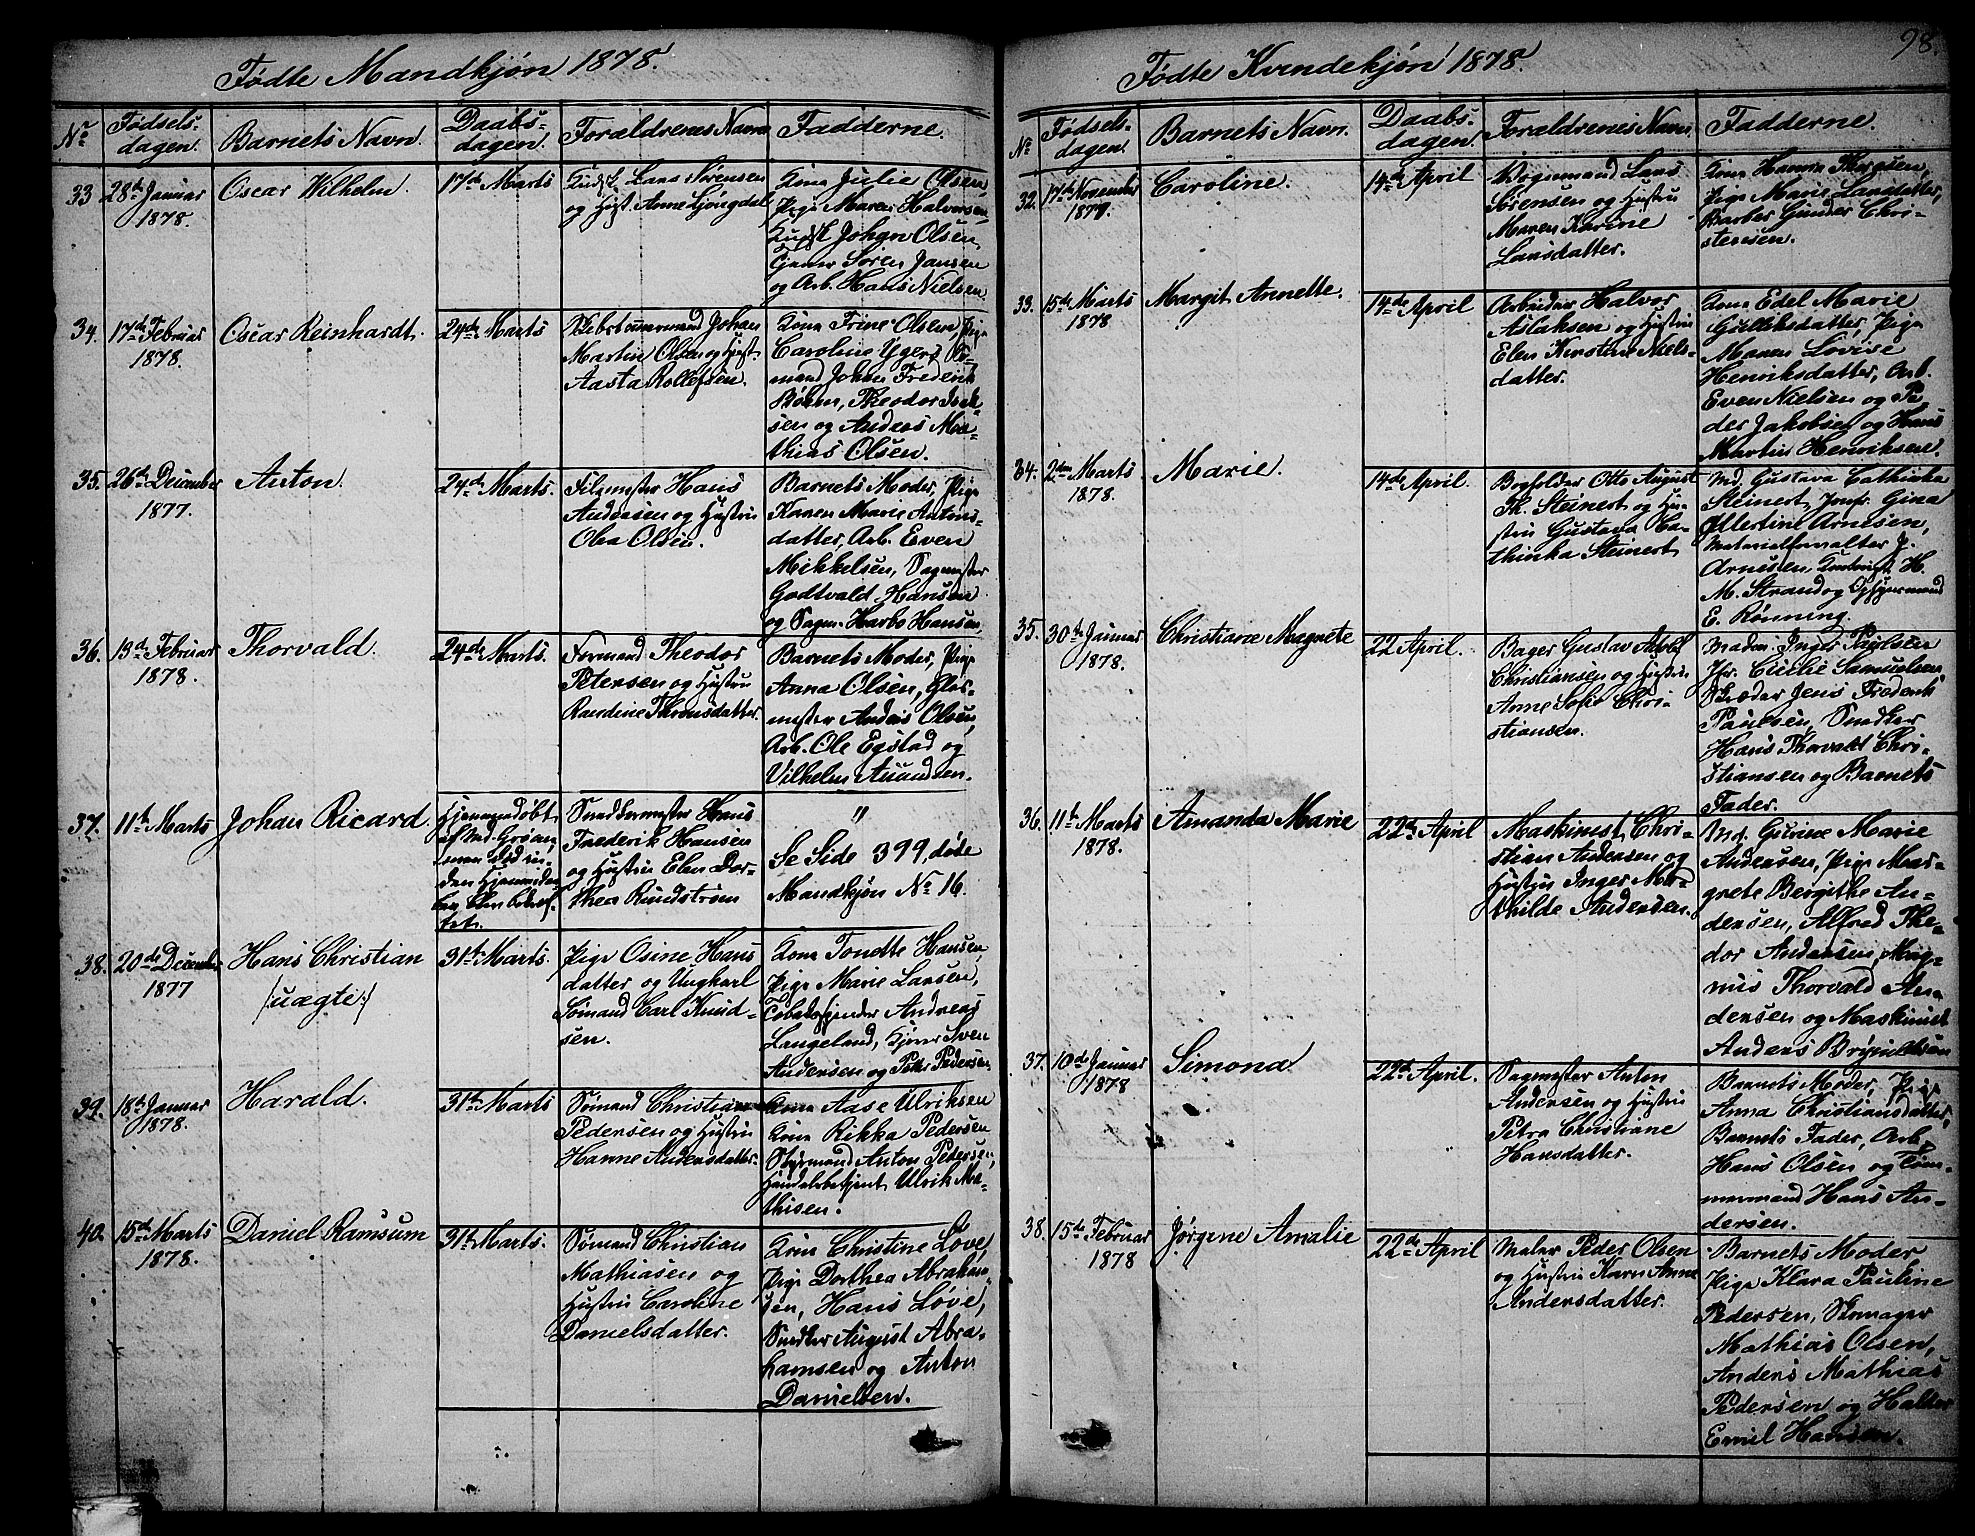 98.
Fødte Mandkjøn 1878.
No
Fødsels-
dagen.
Barnets Navn.
Daabs-
dagen.
Forældrenes Navn
Fadderne.
33
28de Januar
1878.
Oscar Wilhelm.
17de Marts
Lars Sørensen
og Hust. Anne Ljøngdal
Kone Julie Olsen,
Pige Maren Halvorsen
Johan Olsen
Søren Jansen
og Arb. Hans Nielsen.
34.
17de Februar
1878.
Oscar Reinhardt.
24de Marts
Johan
Martin Olsen og Hust.
Aasta Rollefsen.
Kone Trine Olsen, Pige
Caroline
mand Johan Frederik
Theodor
sen og Anders Ma-
thias Olsen.
35.
26de December
1877.
Anton.
24de Marts.
Filemester Hans
Andersen og Hustru
Olea Olsen.
Barnets Moder, Pige
Karen Marie Antons-
datter, Arb. Even
Mikkelsen, Sagmester
Godtvald Hansen
og Sagm. Harbo Hansen
36.
13de Februar
1878.
Thorvald.
24de Marts.
Formand Theodor
Petersen og Hustru
Randine Thronsdatter.
Barnets Moder, Pige
Anna Olsen, Glas-
mester Anders Olsen,
Arb. Ole Egstad og
Vilhelm Amundsen.
37.
11te Marts
Johan Ricard.
Hjemmedøbt
af Md. Gröan,
men død in-
den
Snedkermester Hans
Frederik Hansen
og Hustru Elen Dor-
thea Rundström
"
Se Side 399, døde
Mandkjøn No 16.
38.
20de December
1877
Hans Christian
/:uægte:/
31te Marts.
Pige Osine Hans
datter og Ungkarl
Sømand Carl Knud-
sen.
Kone Tonette Hansen,
Pige Marie Larsen,
Andreas
Langeland, Sven
Andersen og Peter Pedersen
39.
18de Januar
1878.
Harald.
31te Marts
Sømand Christian
Pedersen og Hustru
Hanne Andersdatter.
Kone Aase Ulriksen
Kone Rikka Pedersen
Styrmand Anton Pedersen,
Handelsbetjent Ulrik Ma-
thisen.
40.
15de Marts
1878.
Daniel Ramsum
31te Marts.
Sømand Christian
Mathiasen og
Hustru Caroline
Danielsdatter.
Kone Christine Løve,
Pige Dorthea Abraham-
sen, Hans Løve,
Snedker August Abra-
hamsen og Anton
Danielsen.
Fødte Kvindekjøn 1878.
No
Fødsels-
dagen.
Barnets Navn.
Daabs-
dagen.
Forældrenes Navn.
Fadderne.
32.
17de November
1877.
Caroline.
14de April
Vognmand Lars
Sørensen og Hustru
Maren Karine
Larsdatter.
Kone Hanna
Pige Marie Larsdatter,
Barber Gunder Chri-
stensen.
33.
15de Marts
1878
Margit Annette.
14de April
Arbeider Halvor
Aslaksen og Hustru
Elen Kirstine Niels-
datter.
Kone Edel Marie
Gulliksdatter, Pige
Maren Lovise
Henriksdatter, Arb.
Even Nielsen og Pe-
der Jakobsen og Hans
Martin Henriksen.
34.
2den Marts
1878.
Marie.
14de April.
Bogholder Otto August
Th. Steinert og Hu-
stru Gustava Ca-
thinka Steinert
Md. Gustava Cathinka
Steinert, Jomfr. Gina
Mertine Arnesen,
Materialforvalter J.
Arnesen, H.
M. Strand og Opsynsmand
E. Rønning.
35.
30te Januar
1878.
Christiane Magnete
22 April.
Bager Gustav Adolf
Christiansen og Hustru
Anne Sofie Chri-
stiansen.
Madm. Inger Paulsen
Jfr. Cecilie Samuelsen
Skræder Jens Frederik
Paulsen, Snedker
Hans Thorvald Chri-
stiansen og Barnets
Fader.
36.
11te Marts
1878.
Amanda Marie
22de April
Maskinist Chri-
stian Andersen og
Hustru Inger Ma-
thilde Andersen.
Md. Gurine Marie
Andersen, Pige Mar-
grete Bergithe An-
dersen, Alfred The-
dor Andersen, Mag-
nus Thorvald An-
dersen og Maskinist
Anders Brynildsen
37.
10de Januar
1878
Simona.
22de April.
Sagmester Anton
Andersen og Hustru
Petra Christiane
Hansdatter.
Barnets Moder, Pige
Anna Christiansdatter,
Barnets Fader, Arb.
Hans Olsen og Tøm-
mermand Hans An-
dersen.
38.
15de Februar
1878
Jørgene Amalie
22de April
Maler Peder Olsen
og Hustru Karen Anne
Andersdatter.
Barnets Moder
Pige Klara Pauline
Pedersen, Skomager
Mathias Olsen,
Anders Mathias
Pedersen og
Emil Hansen.